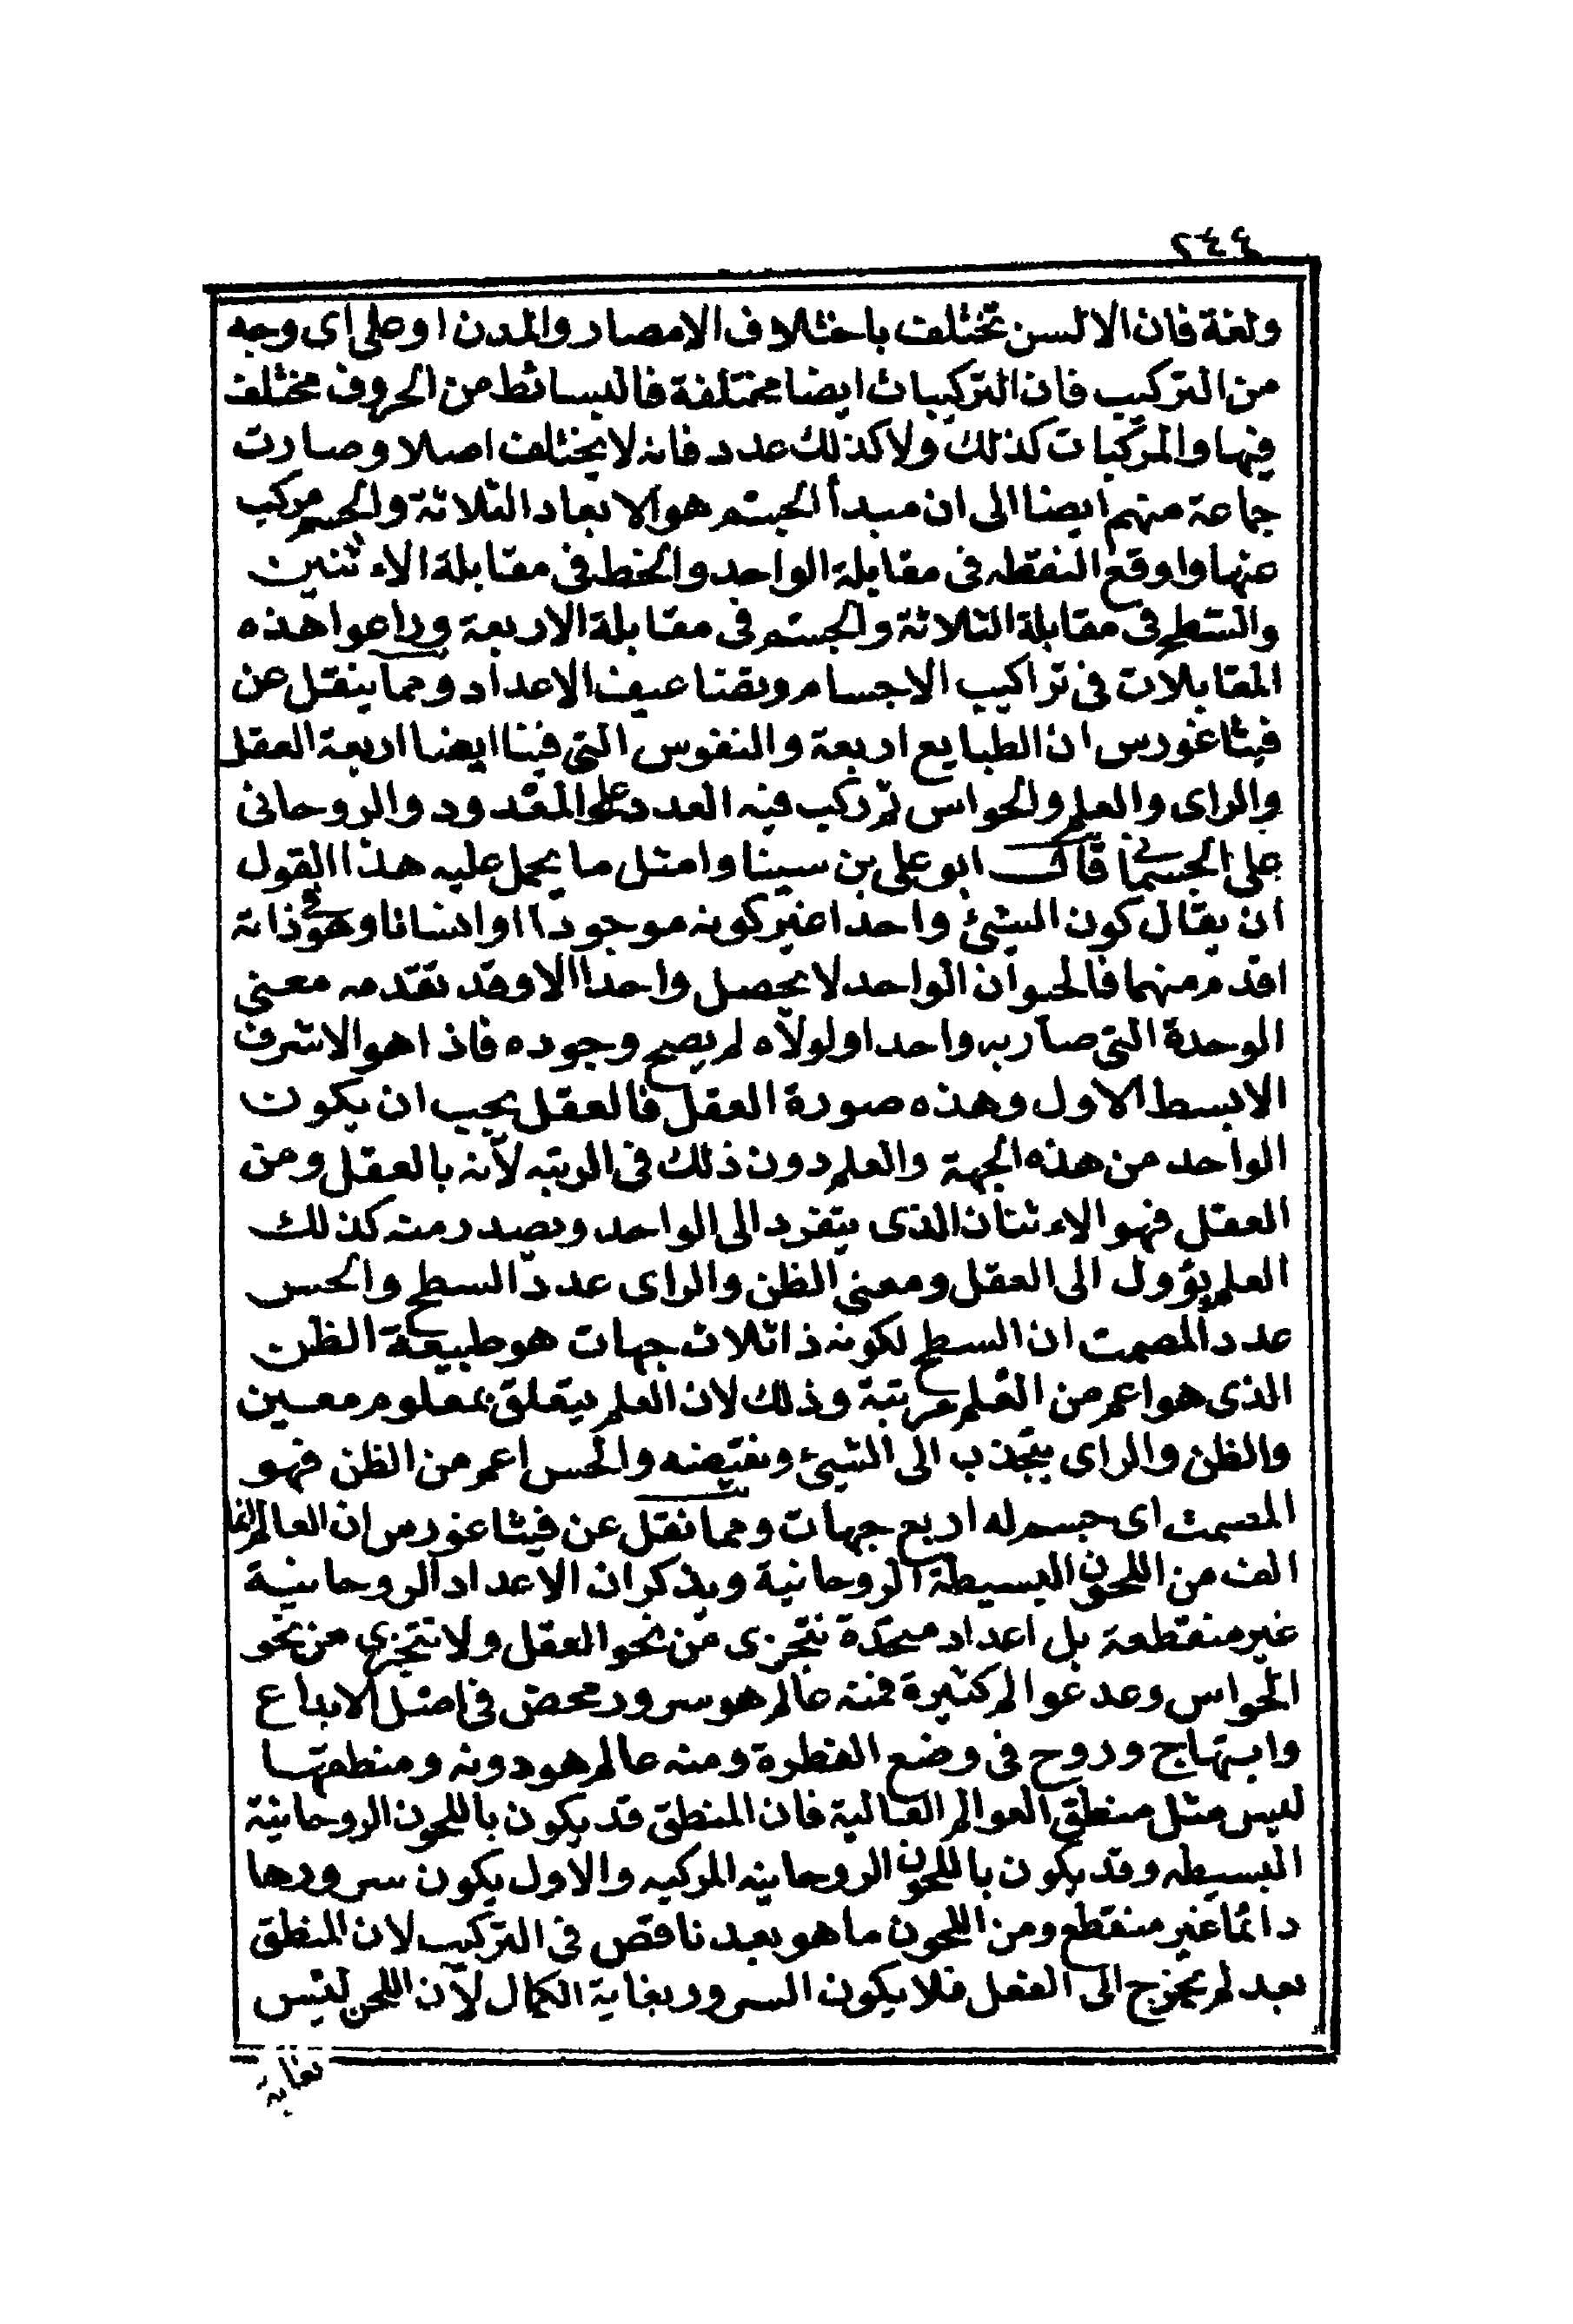 ٢٤٤
ولغة فان الالسن تختلف باختلاف الامصار والمدن او على اى وجه
من التركيب فان التركيبات ايضا مختلفة فالبسائط من الحروف مختلف
فيها والمركبات كذلك ولا كذلك عدد فانه لا يختلف اصلا وصارت
جماعة منهم ايضا الى ان مبدأ الجسم هو الابعاد الثلاثة والجسم مركب
عنها واوقع النقطه فى مقابلة الواحد والخط فى مقابلة الاءثنين
والسطح فى مقابلة الثلاثة والجسم فى مقابلة الاربعة وراعوا هذه
المقابلات فى تراكيب الاجسام وتضاعيف الاعداد ومما ينقل عن
فيثاغورس ان الطبايع اربعة والنفوس التى فينا ايضا اربعة العقل
والراى والعلم والحواس ثم ركب فيه العدد على المعدود والروحانى
على الجسمانى قال ابو على بن سينا وامثل ما يحمل عليه هذا القول
ان يقال كون الشئ واحدا غير كونه موجودا او انسانا وهو فى ذاته
اقدم منهما فالحيوان الواحد لا يحصل واحدا الا وقد تقدمه معنى
الوحدة التى صار به واحدا ولولاه لم يصح وجوده فاذا هو الاشرف
الابسط الاول وهذه صورة العقل فالعقل يجب ان يكون
الواحد من هذه الجهة والعلم دون ذلك فى الرتبه لأنه بالعقل ومن
العقل فهو الاءثنان الذى يتفرد الى الواحد ويصدر منه كذلك
العلم يؤول الى العقل ومعنى الظن والراى عدد السطح والحس
عدد المصمت ان السطح لكونه ذا ثلاث جهات هو طبيعة الظن
الذى هو اعم من العلم مرتبة وذلك لان العلم يتعلق بمعلوم معين
والظن والراى يتجذب الى الشيئ ونقيضه والحس اعم من الظن فهو
المصمت اى جسم له اربع جهات ومما نقل عن فيثاغورس ان العالم انما
الف من اللحون البسيطة الروحانية ويذكر ان الاعداد الروحانية
غير منقطعة بل اعداد متحدة تتجزى من نحو العقل ولا تتجزى من نحو
الحواس وعد عوالم كثيرة فمنه عالم هو سرور محض فى اصل الابداع
وابتهاج وروح فى وضع الفطرة ومنه عالم هو دونه ومنطقها
ليس مثل منطق العوالم العالية فان المنطق قد يكون باللحون الروحانية
البسيطه وقد يكون باللحون الروحانيه المركبه والاول يكون سرورها
دائما غير منقطع ومن اللحون ما هو بعد ناقص فى التركيب لان المنطق
بعد لم يخرج الى الفعل فلا يكون السرور بغاية الكمال لأن اللحن ليس
بغاية